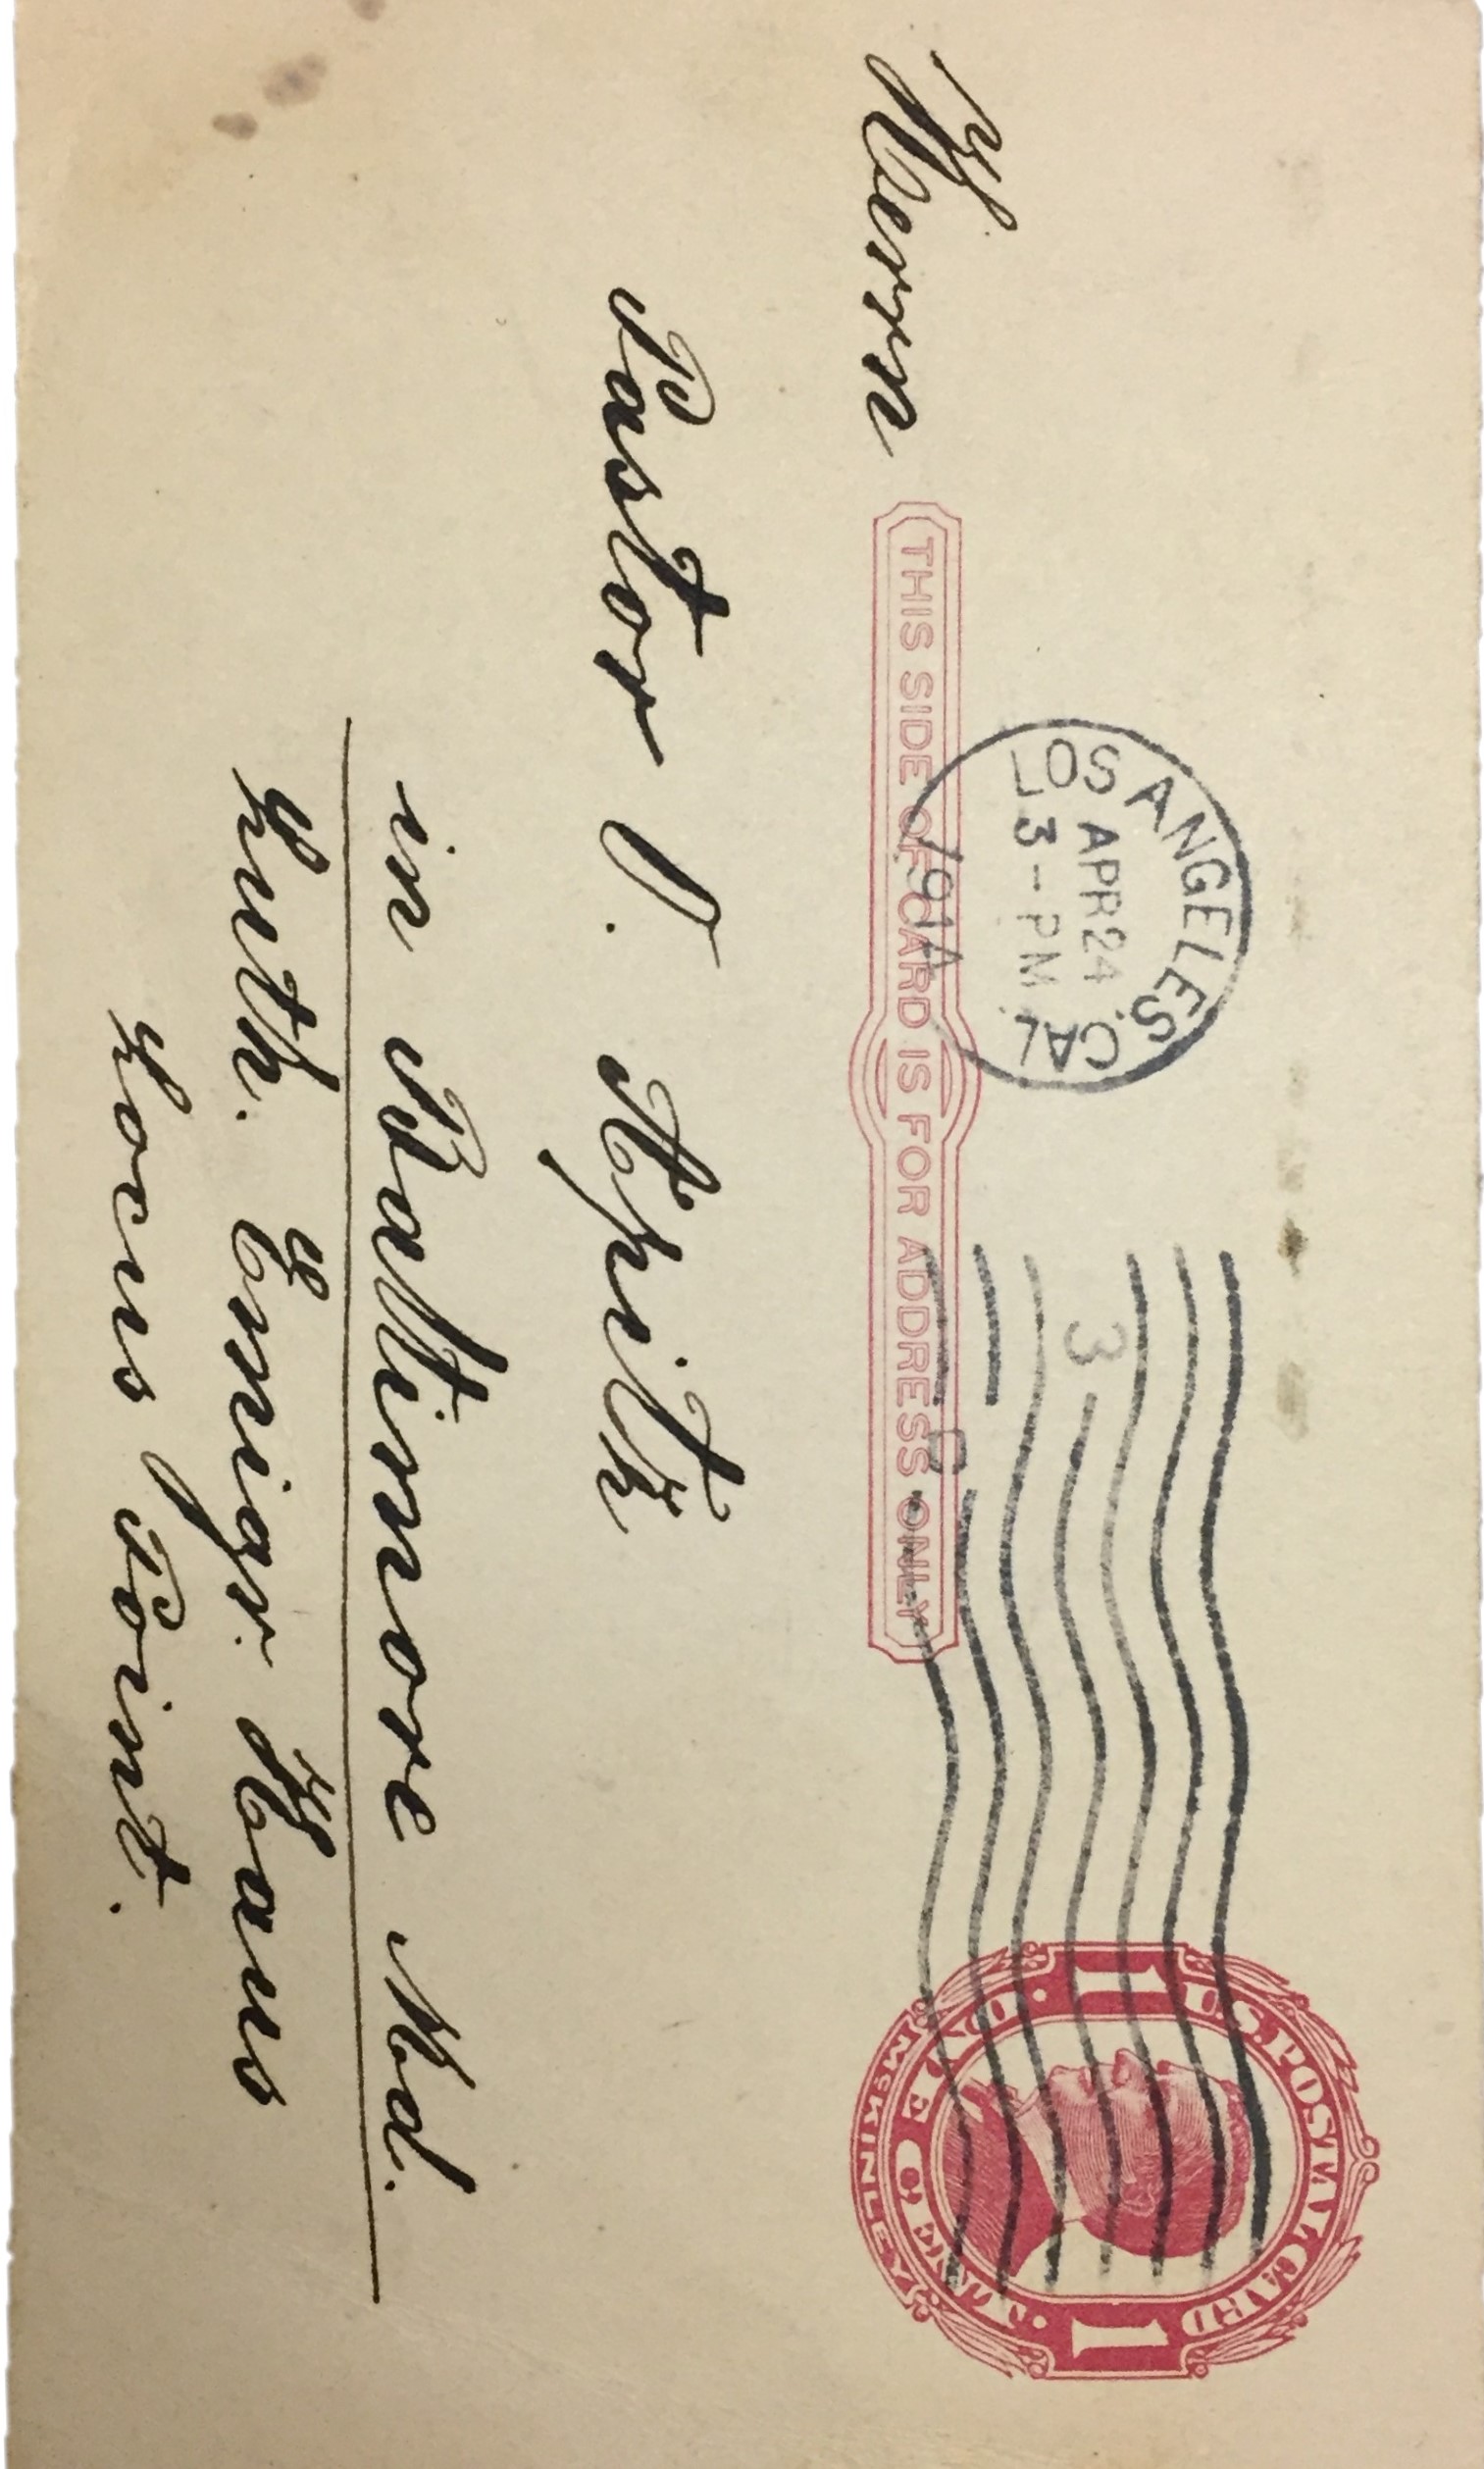 U.S. POSTAL CARD
1 1
ONE CENT
McKINLEY
LOS ANGELES CAL.
APR 24
3 - PM
191
3
D
THIS SIDE OF CARD IS FOR ADDRESS ONLY
Herrn
Pastor O. Apitz
in Baltimore Md.
Luth. Emigr. Haus
Locus Point.